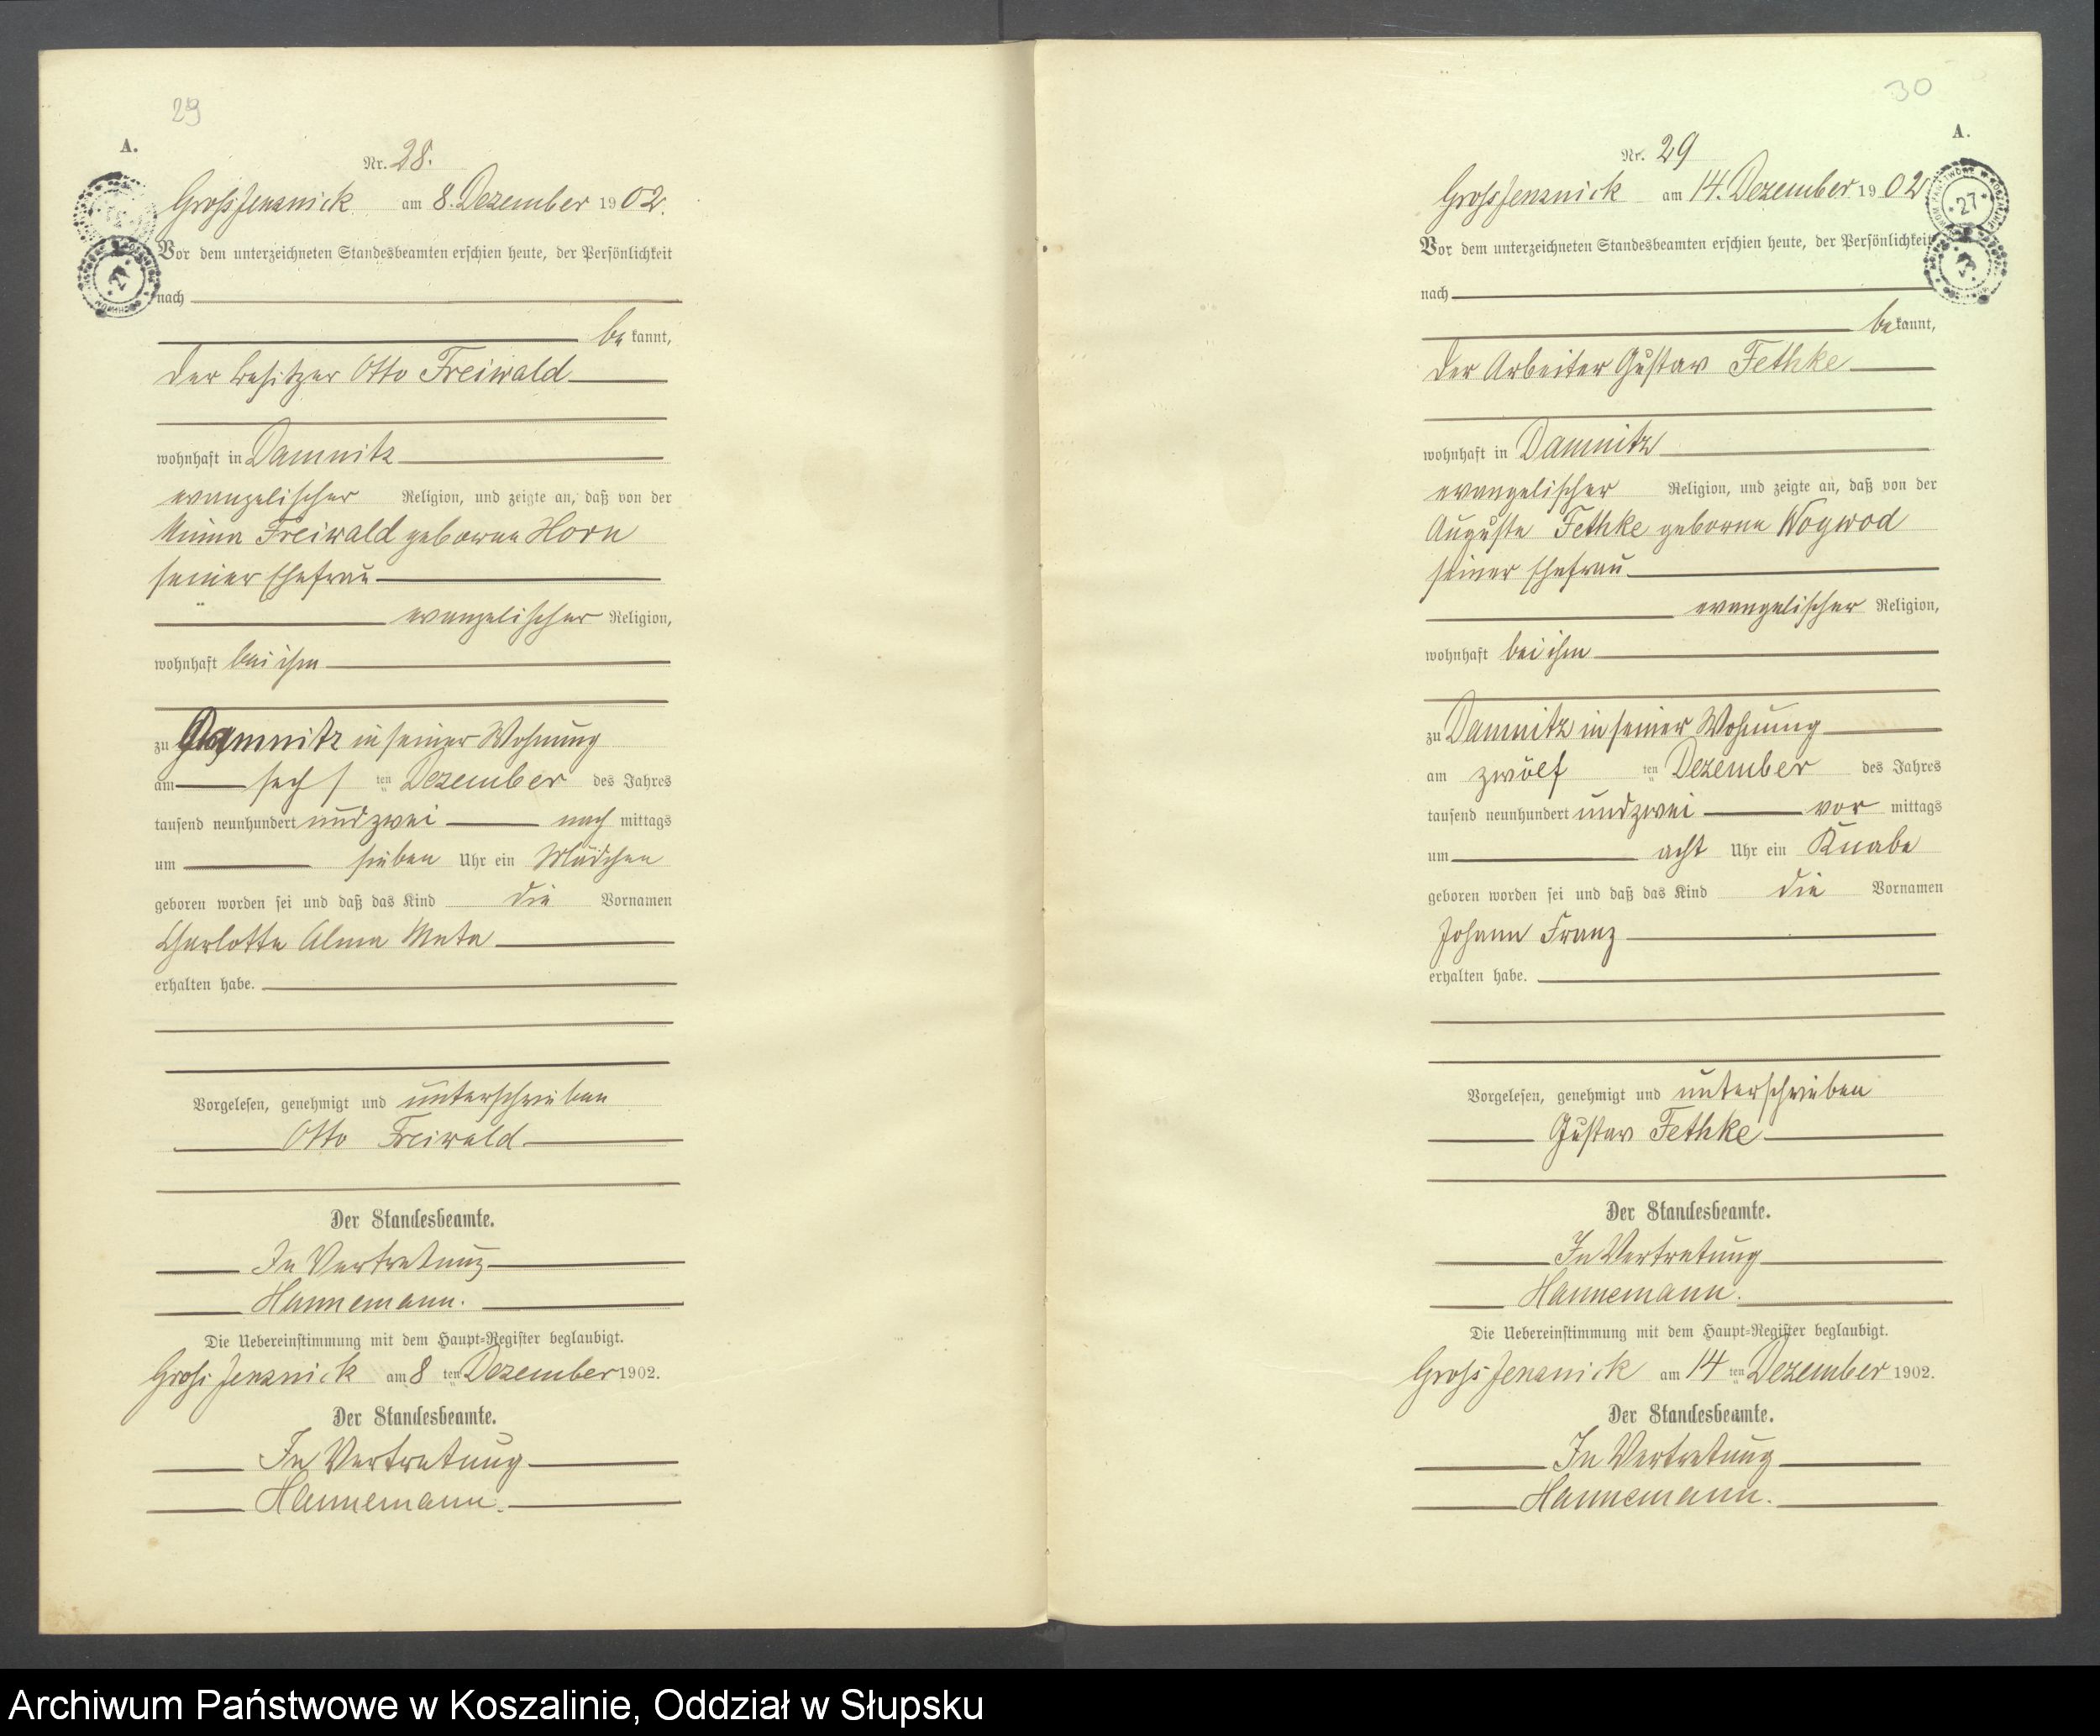 29
A.
Nr. 28.
Gross Jenznick am 8. Dezember 1902.
Vor dem unterzeichneten Standesbeamten erschien heute, der Persönlichkeit
nach
bekannt,
der Besitzer Otto Freiwald
wohnhaft in Damnitz
evangelischer Religion, und zeigte an, daß von der
Minna Freiwald geborne Horn
seiner Ehefrau
evangelischer Religion,
wohnhaft bei ihm
zu Damnitz in seiner Wohnung
am sechs ten Dezember des Jahres
tausend neunhundert und zwei nach mittags
um sieben Uhr ein Mädchen
geboren worden sei und daß das Kind die Vornamen
Charlotte Alma Meta
erhalten habe.
Vorgelesen, genehmigt und unterschrieben
Otto Freiwald
Der Standesbeamte.
In Vertretung
Hannemann.
Die Uebereinstimmung mit dem Haupt-Register beglaubigt.
Gross Jenznick am 8 ten Dezember 1902.
Der Standesbeamte.
In Vertretung
Hannemann.
30
A.
Nr. 29
Gross Jenznick am 14. Dezember 1902
27
Vor dem unterzeichneten Standesbeamten erschien heute, der Persönlichkeit
nach
bekannt,
der Arbeiter Gustav Fethke
wohnhaft in Damnitz
evangelischer Religion, und zeigte an, daß von der
Auguste Fethke geborne Wogwod
seiner Ehefrau
evangelischer Religion,
wohnhaft bei ihm
zu Damnitz in seiner Wohnung
am zwölf ten Dezember des Jahres
tausend neunhundert und zwei vor mittags
um acht Uhr ein Knabe
geboren worden sei und daß das Kind die Vornamen
Johann Franz
erhalten habe.
Vorgelesen, genehmigt und unterschrieben
Gustav Fethke
Der Standesbeamte.
In Vertretung
Hannemann.
Die Uebereinstimmung mit dem Haupt-Register beglaubigt.
Gross Jenznick am 14 ten Dezember 1902.
Der Standesbeamte.
In Vertretung
Hannemann.
Archiwum Państwowe w Koszalinie, Oddział w Słupsku